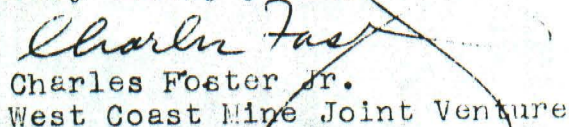 Charles Fos
Charles Foster Jr.
West Coast Mine Joint Venture